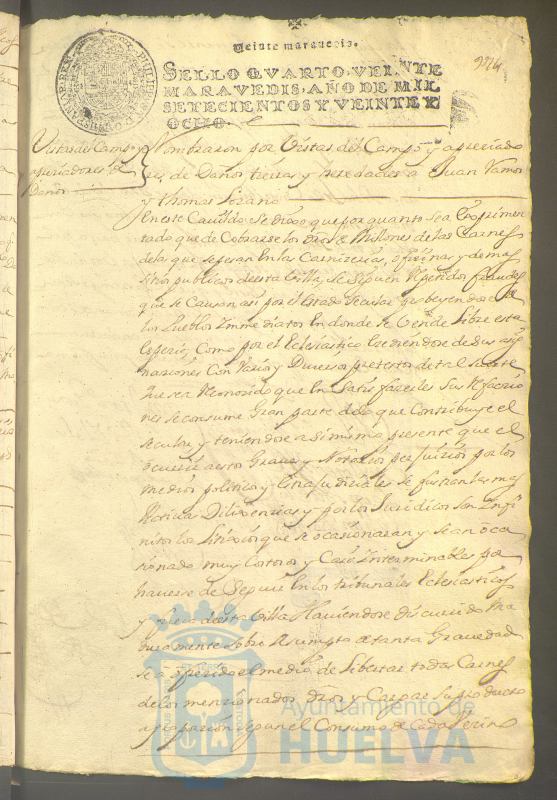 Veinte maravedis.
SELLO QVARTO, VEINTE
MARAVEDIS, AÑO DE MIL
SETECIENTOS Y VEINTE Y
OCHO.
Vistas del Campo y
apreciadores de
Daños
Nombraron por Vistas del Campo y apreciado
res de Daños tierras y heredades a Juan Ramos
y Thomas Lozano
En este Cavildo se dixo que por quanto se a experimen
tado que de Cobrarse los dros de Millones de las Carnes
de la que se pesan en las Carnicerias, oficinas y demas
sitios publicos de esta Villa, se siguen repetidos fraudes
que se causan asi por el estado secular proveyendose de
los Pueblos Immediatos en donde se Vende libre esta
especie, como por el Eclesiastico
naciones con Varios y Diversos pretextos de tal suerte
que se a reconosido que en satisfacerles sus refaccio
nes se consume gran parte de lo que Contribuye el
secular y teniendose asimismo presente que el
ocurrir a estos Graves y Notorios perjuicios por los
medios politicos y extrajudiciales se frustran las mas
activas Diligencias y por los Juridicos son Infi
nitos los litixios que se ocasionaran y se an oca
sionado muy Costosos y Casi Interminables por
haverse de seguir en los tribunales Eclesiasticos
y fuera de esta Villa Haviendose discurrido Ma
duramente sobre Asumpto de tanta Gravedad
se a ofrecido el medio de libertar todas Carnes
de los mencionados dros y Cargar su producto
segun el Consumo de Cada Vezino
Ayuntamiento de
HUELVA